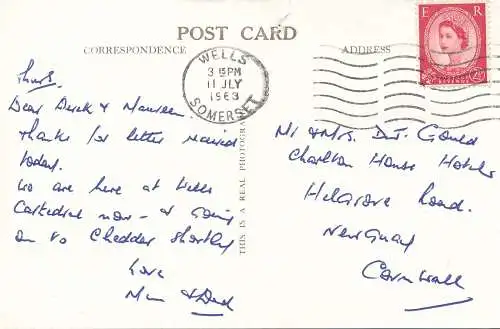 POST CARD
CORRESPONDENCE
ADDRESS
E R
WELLS
3 15 PM
11 JLY
1963
SOMERSET
Thurs.
Dear Derek & Maureen.
Thanks for letter received
today.
We are here at Wells
Cathedral now - & going
on to Cheddar shortly
Love
Mum & Dad
THIS IS A REAL PHOTOGRAPH
Mr & Mrs. D.J. Gould
Charlton House Hotel
Helgrove Road.
Newquay
Cornwall